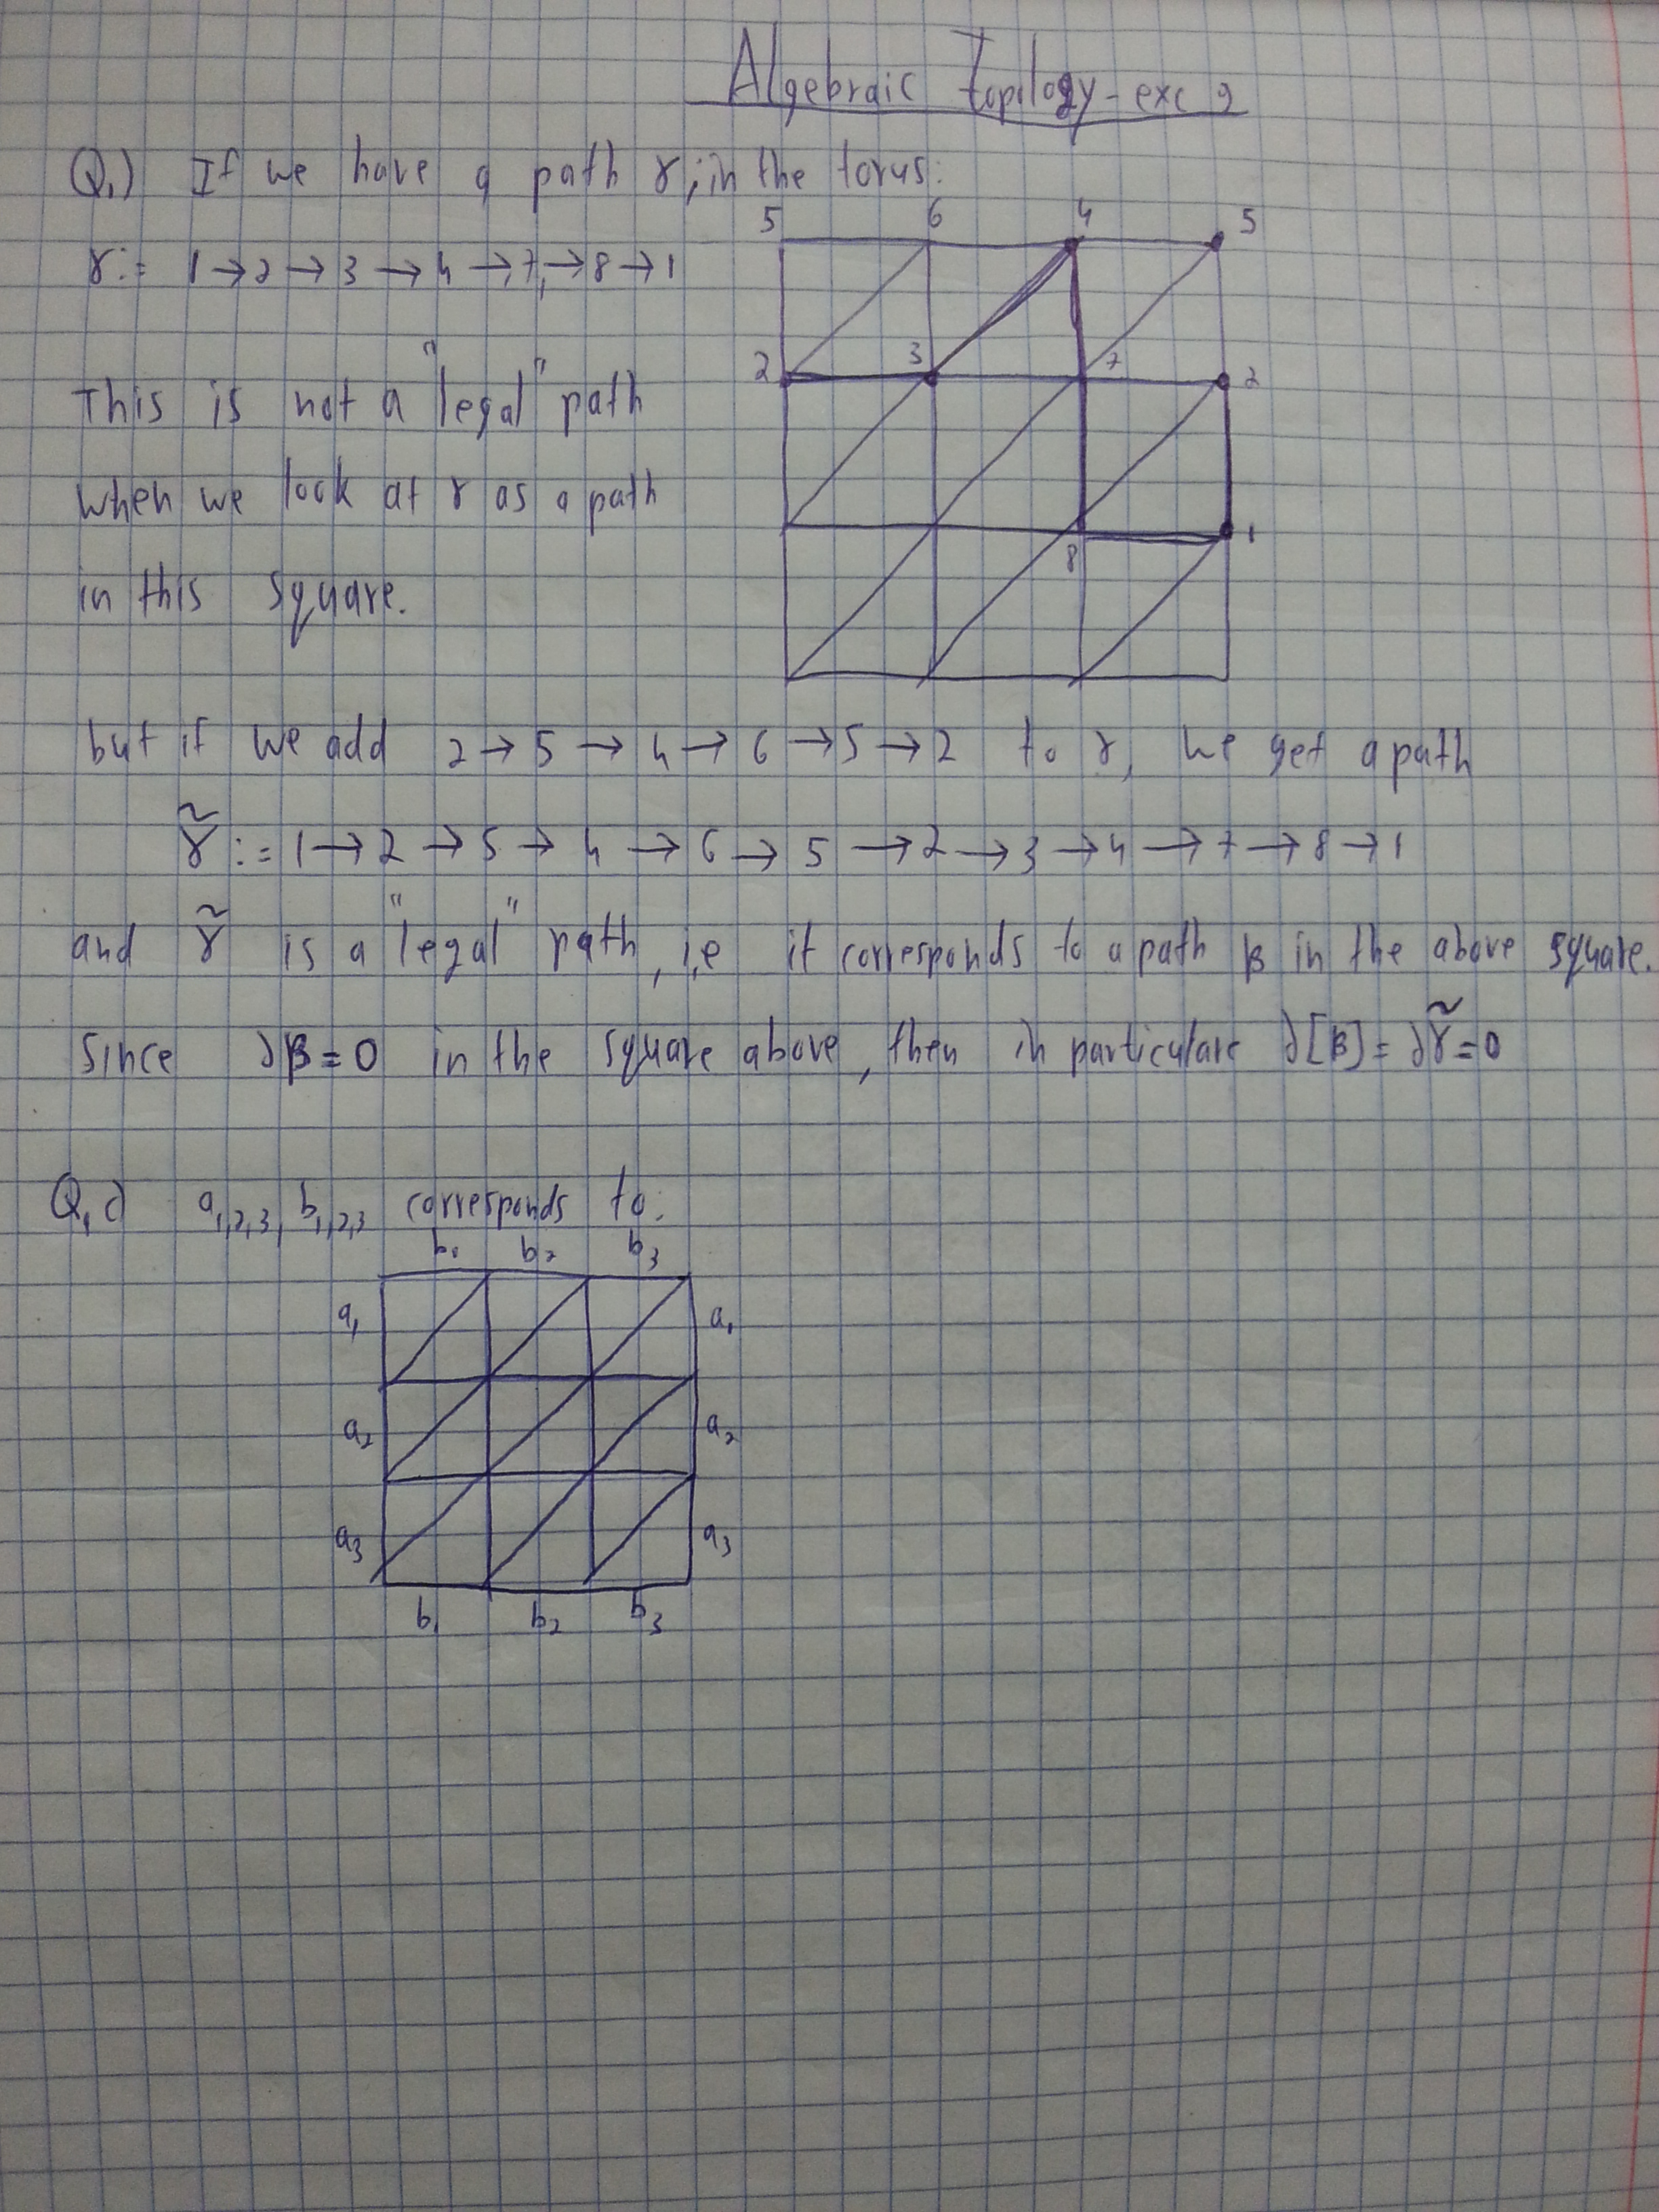 Algebraic topology - exc 2
Q1) If we have a path γ, in the torus:
γ := 1 → 2 → 3 → 4 → 7 → 8 → 1
5 6 4 5
2 3 7 2
8 1
This is not a "legal" path
when we look at γ as a path
in this square.
but if we add 2 → 5 → 4 → 6 → 5 → 2 to γ, we get a path
γ̃ := 1 → 2 → 5 → 4 → 6 → 5 → 2 → 3 → 4 → 7 → 8 → 1
and γ̃ is a "legal" path, i,e it corresponds to a path β in the above square.
Since ∂β = 0 in the square above, then in particulare ∂[β] = ∂γ̃ = 0
a1,2,3, b1,2,3 corresponds to:
b1 b2 b3
a1 a1
a2 a2
a3 a3
b1 b2 b3